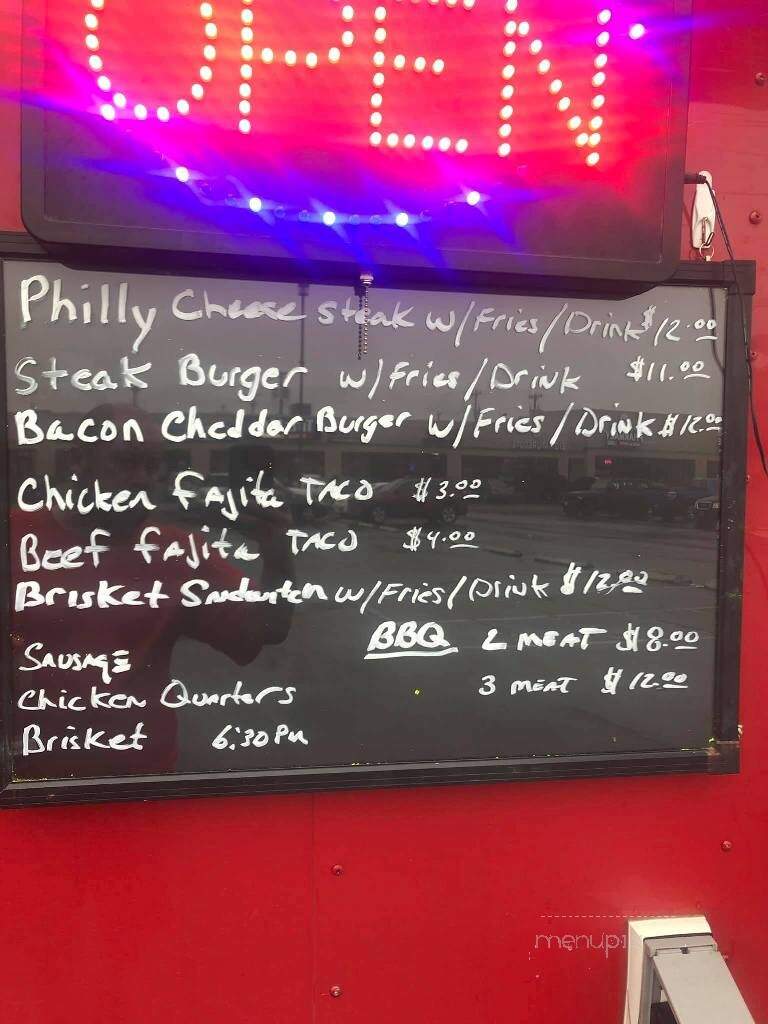 OPEN
Philly Cheese steak w/Fries/Drink $12.00
Steak Burger w/Fries/Drink $11.00
Bacon Cheddar Burger w/Fries/Drink $12.00
Chicken fAjita TACO $3.00
Beef fAjita TACO $4.00
Brisket Sandwich w/Fries/Drink $12.00
BBQ 2 MEAT $8.00
SAUSAGE
3 MEAT $12.00
Chicken Quarters
Brisket 6:30 PM
menupix